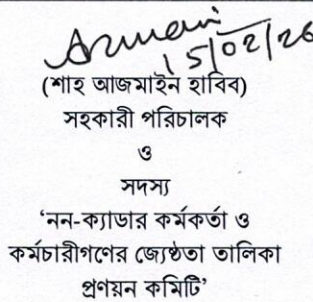 Azmain
15/02/26
(শাহ আজমাইন হাবিব)
সহকারী পরিচালক
ও
সদস্য
‘নন-ক্যাডার কর্মকর্তা ও
কর্মচারীগণের জ্যেষ্ঠতা তালিকা
প্রণয়ন কমিটি’